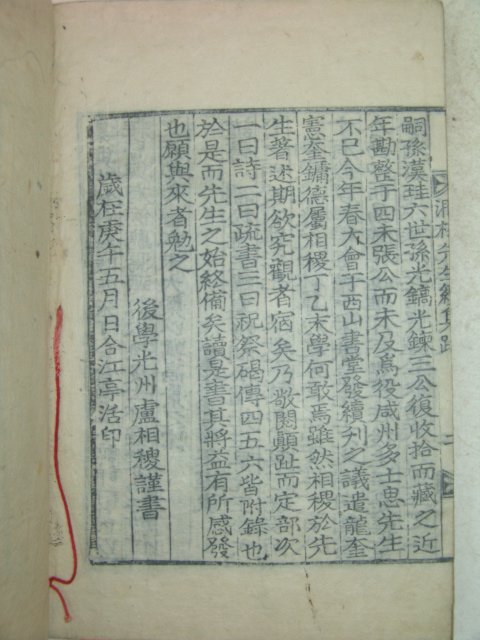 嗣孫漢珪六世孫光鎬光鍊三公復收拾而藏之近
年勘整于四未張公而未及爲役咸州多士思先生
不已今年春大會于西山書堂發續刊之議遣龍奎
憲奎鏞德屬相稷丁乙末學何敢焉雖然相稷於先
生著述期欲究觀者宿矣乃敬閱顚趾而定部次
一曰詩二曰疏書三曰祝祭碣傳四五六皆附錄也
於是而先生之始終備矣讀是書其將益有所感發
也願與來者勉之
後學光州盧相稷謹書
歲在庚午五月日合江亭活印
先生續集跋